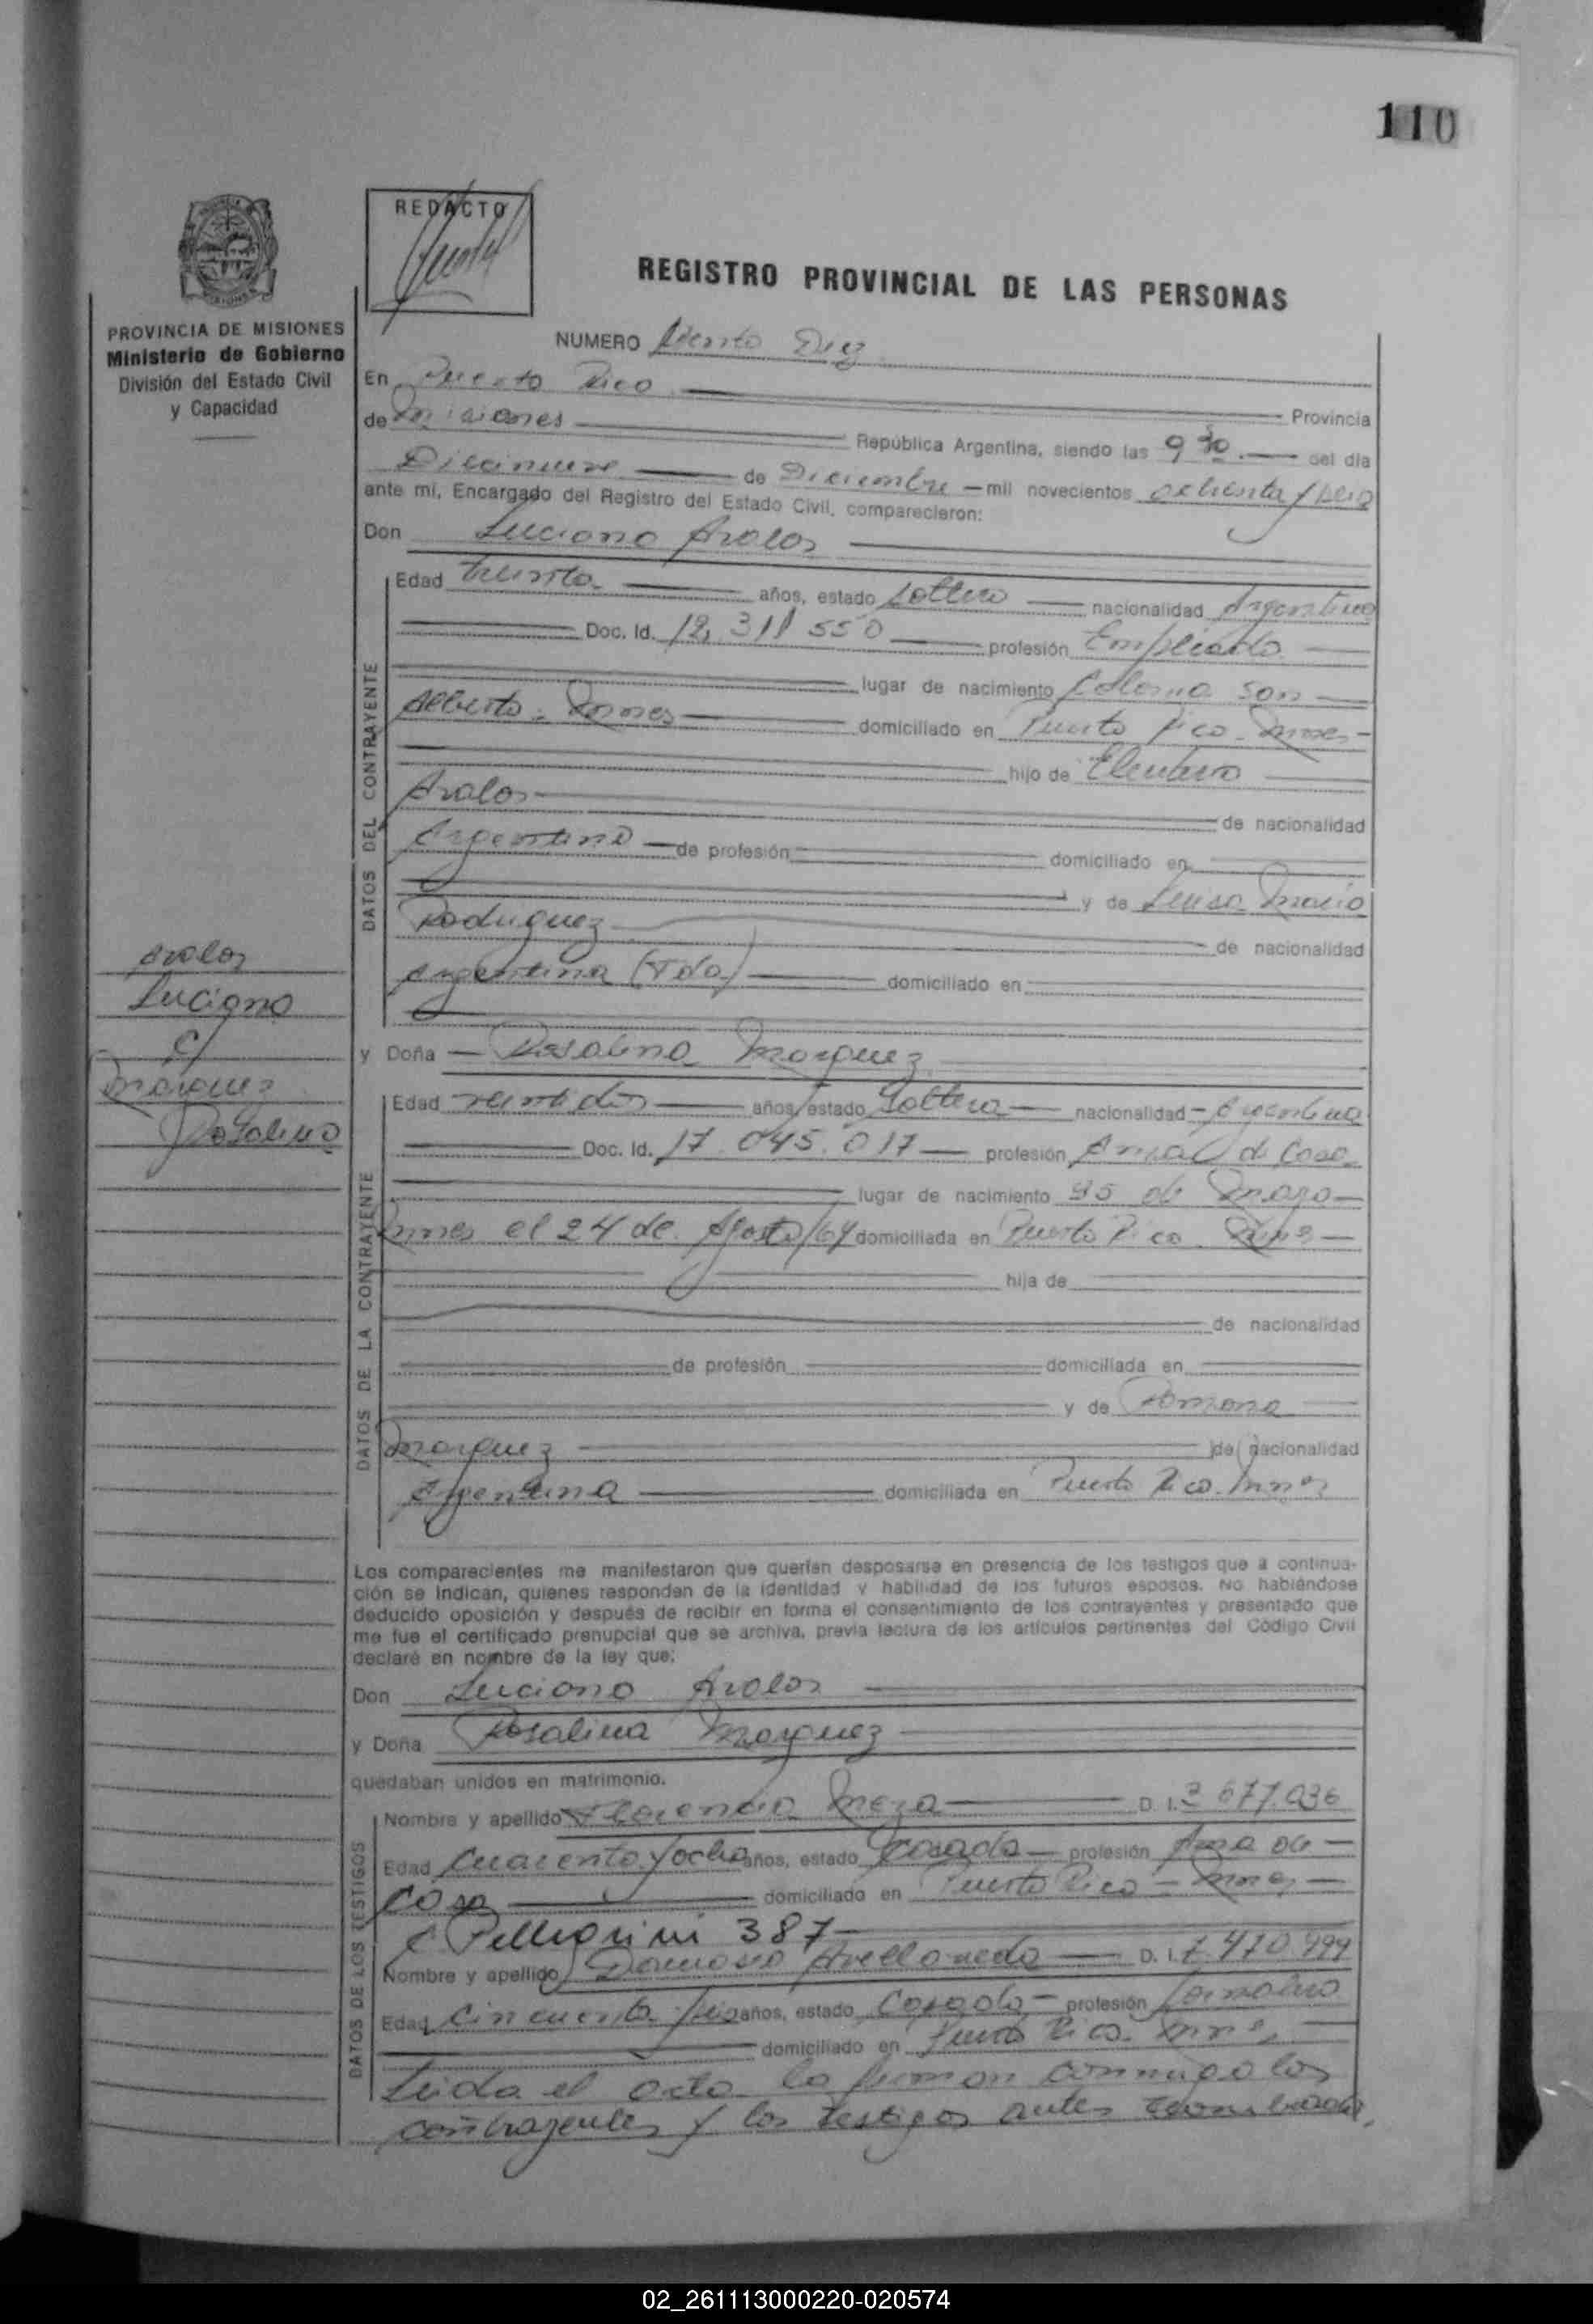 110
REDACTO
REGISTRO PROVINCIAL DE LAS PERSONAS
PROVINCIA DE MISIONES
Ministerio de Gobierno
División del Estado Civil
y Capacidad
NUMERO Ciento Diez
En Puerto Rico Provincia
de Misiones República Argentina, siendo las 9 30 del día
Diecinueve de Diciembre mil novecientos ochenta y seis
ante mí, Encargado del Registro del Estado Civil, comparecieron:
Don Luciano Avalos
DATOS DEL CONTRAYENTE
Edad treinta años, estado soltero nacionalidad Argentino
Doc. Id. 12.311 550 profesión Empleado
lugar de nacimiento Colonia San
Alberto. Mnes domiciliado en Puerto Rico. Mnes
hijo de Eleuterio
Avalos de nacionalidad
Argentino de profesión domiciliado en
y de Luisa María
Rodriguez de nacionalidad
Argentina (Fda) domiciliado en
Avalos
Luciano
c/
Marquez
Rosalina
y Doña Rosalina Marquez
DATOS DE LA CONTRAYENTE
Edad veintidós años, estado Soltera nacionalidad Argentina
Doc. Id. 17.045.017 profesión Ama de Casa
lugar de nacimiento 25 de Mayo
Mnes el 24 de Agosto/64 domiciliada en Puerto Rico Mnes
hija de
de nacionalidad
de profesión domiciliada en
y de Ramona
Marquez de nacionalidad
Argentina domiciliada en Puerto Rico. Mnes
Los comparecientes me manifestaron que querían desposarse en presencia de los testigos que a continua-
ción se indican, quienes responden de la identidad y habilidad de los futuros esposos. No habiéndose
deducido oposición y después de recibir en forma el consentimiento de los contrayentes y presentado que
me fue el certificado prenupcial que se archiva, previa lectura de los artículos pertinentes del Código Civil
declaré en nombre de la ley que:
Don Luciano Avalos
y Doña Rosalina Marquez
quedaban unidos en matrimonio.
DATOS DE LOS TESTIGOS
Nombre y apellido Florencia Meza D. I. 3 677.036
Edad Cuarenta y ocho años, estado Casada profesión Ama de
casa domiciliado en Puerto Rico - Mnes
C Pellegrini 387
Nombre y apellido Damasio Avellaneda D. I. 7.470 499
Edad Cincuenta y seis años, estado Casado profesión Jornalero
domiciliado en Puerto Rico. Mnes
Leida el acta la firman conmigo los
contrayentes y los testigos antes nombrados.
02_261113000220-020574